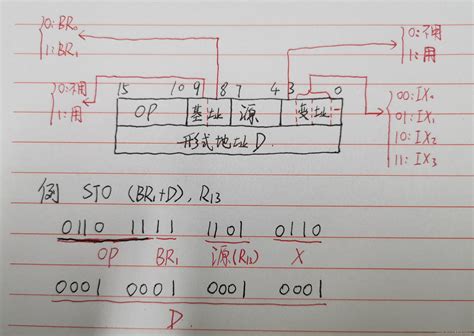 0:BR₀
1:BR₁
0:不用
1:用
0:不用
1:用
15 10 9 8 7 4 3 0
OP 基址 源 变址
形式地址 D.
00:IX₀
01:IX₁
10:IX₂
11:IX₃
例 STO (BR₁+D), R₁₃
0110 1111 1101 0110
OP BR₁ 源(R₁₃) X
0001 0001 0001 0001
D.